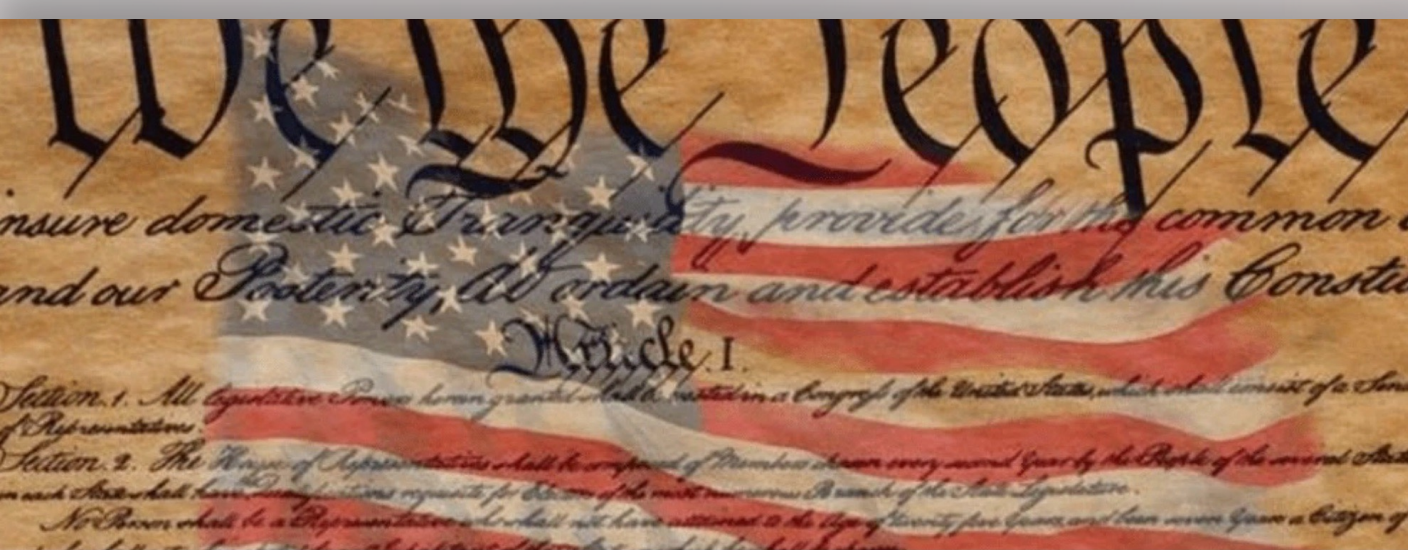 We the People
nsure domestic Tranquility, provide for the common
and our Posterity, do ordain and establish this Constit
Article. I.
Section. 1. All legislative Powers herein granted shall be vested in a Congress of the United States, which shall consist of a Sena
of Representatives.
Section. 2. The House of Representatives shall be composed of Members chosen every second Year by the People of the several State
in each State shall have Qualifications requisite for Electors of the most numerous Branch of the State Legislature.
No Person shall be a Representative who shall not have attained to the Age of twenty five Years, and been seven Years a Citizen of